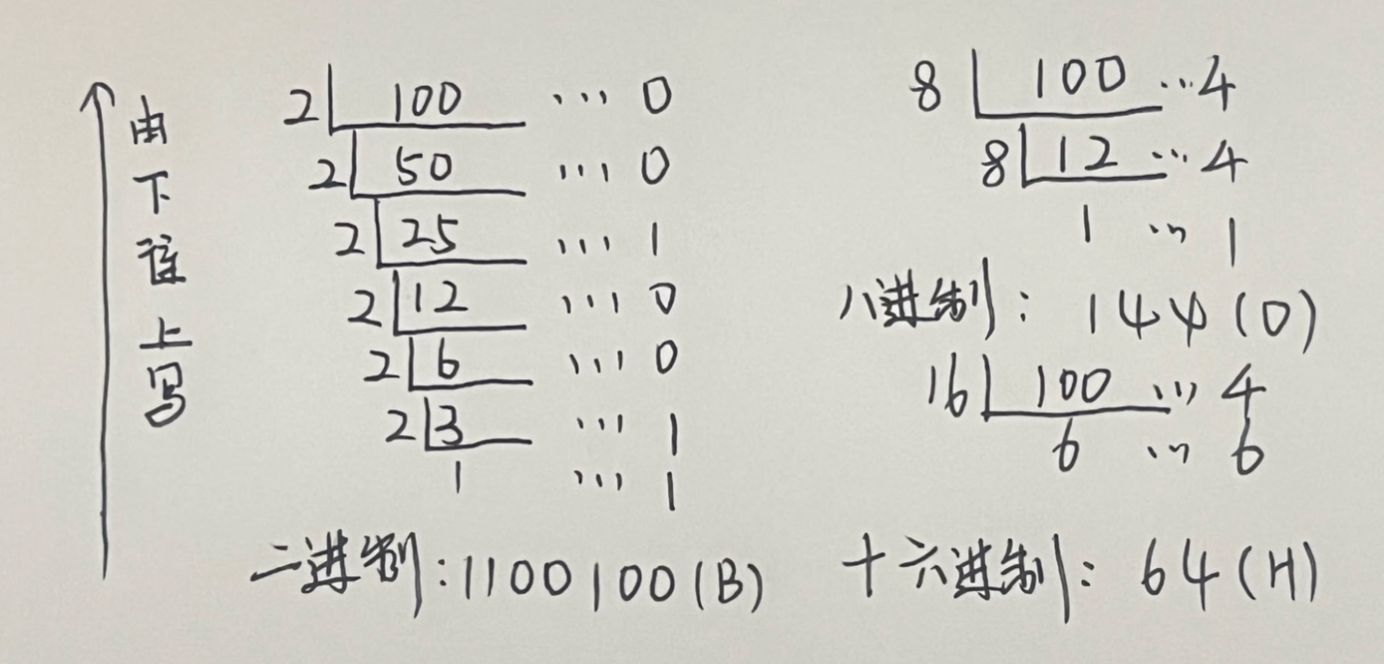 由下往上写
2 100 ... 0
2 50 ... 0
2 25 ... 1
2 12 ... 0
2 6 ... 0
2 3 ... 1
1 ... 1
二进制:1100100(B)
8 100 ... 4
8 12 ... 4
1 ... 1
八进制: 144(O)
16 100 ... 4
6 ... 6
十六进制: 64(H)